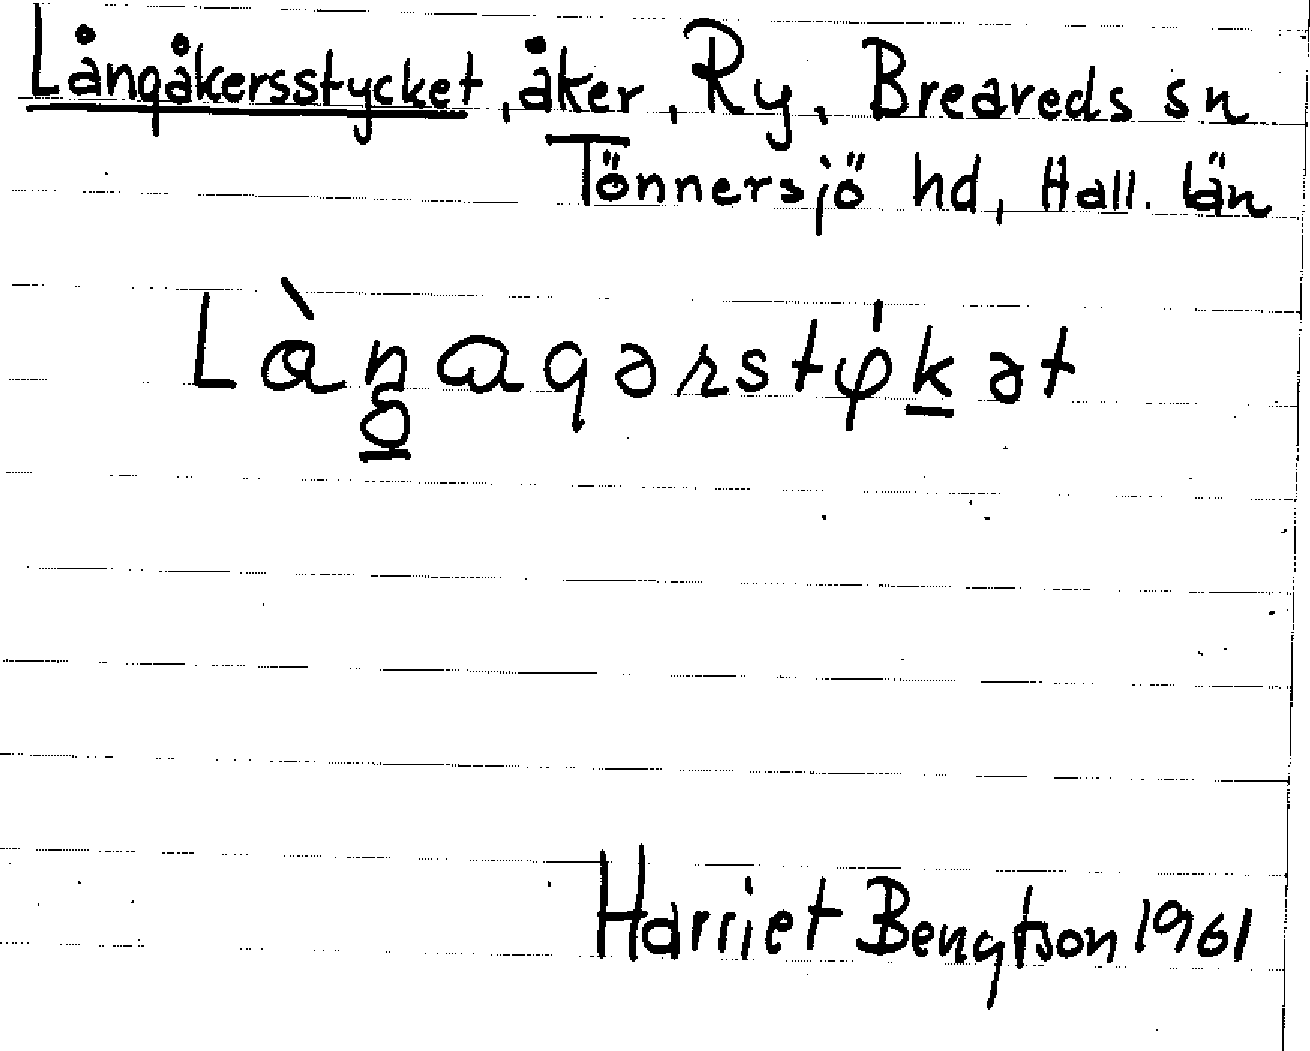 Långåkersstycket, åker, Ry, Breareds sn
Tönnersjö hd, Hall. län
Làŋagərstφ́kət
Harriet Bengtson 1961